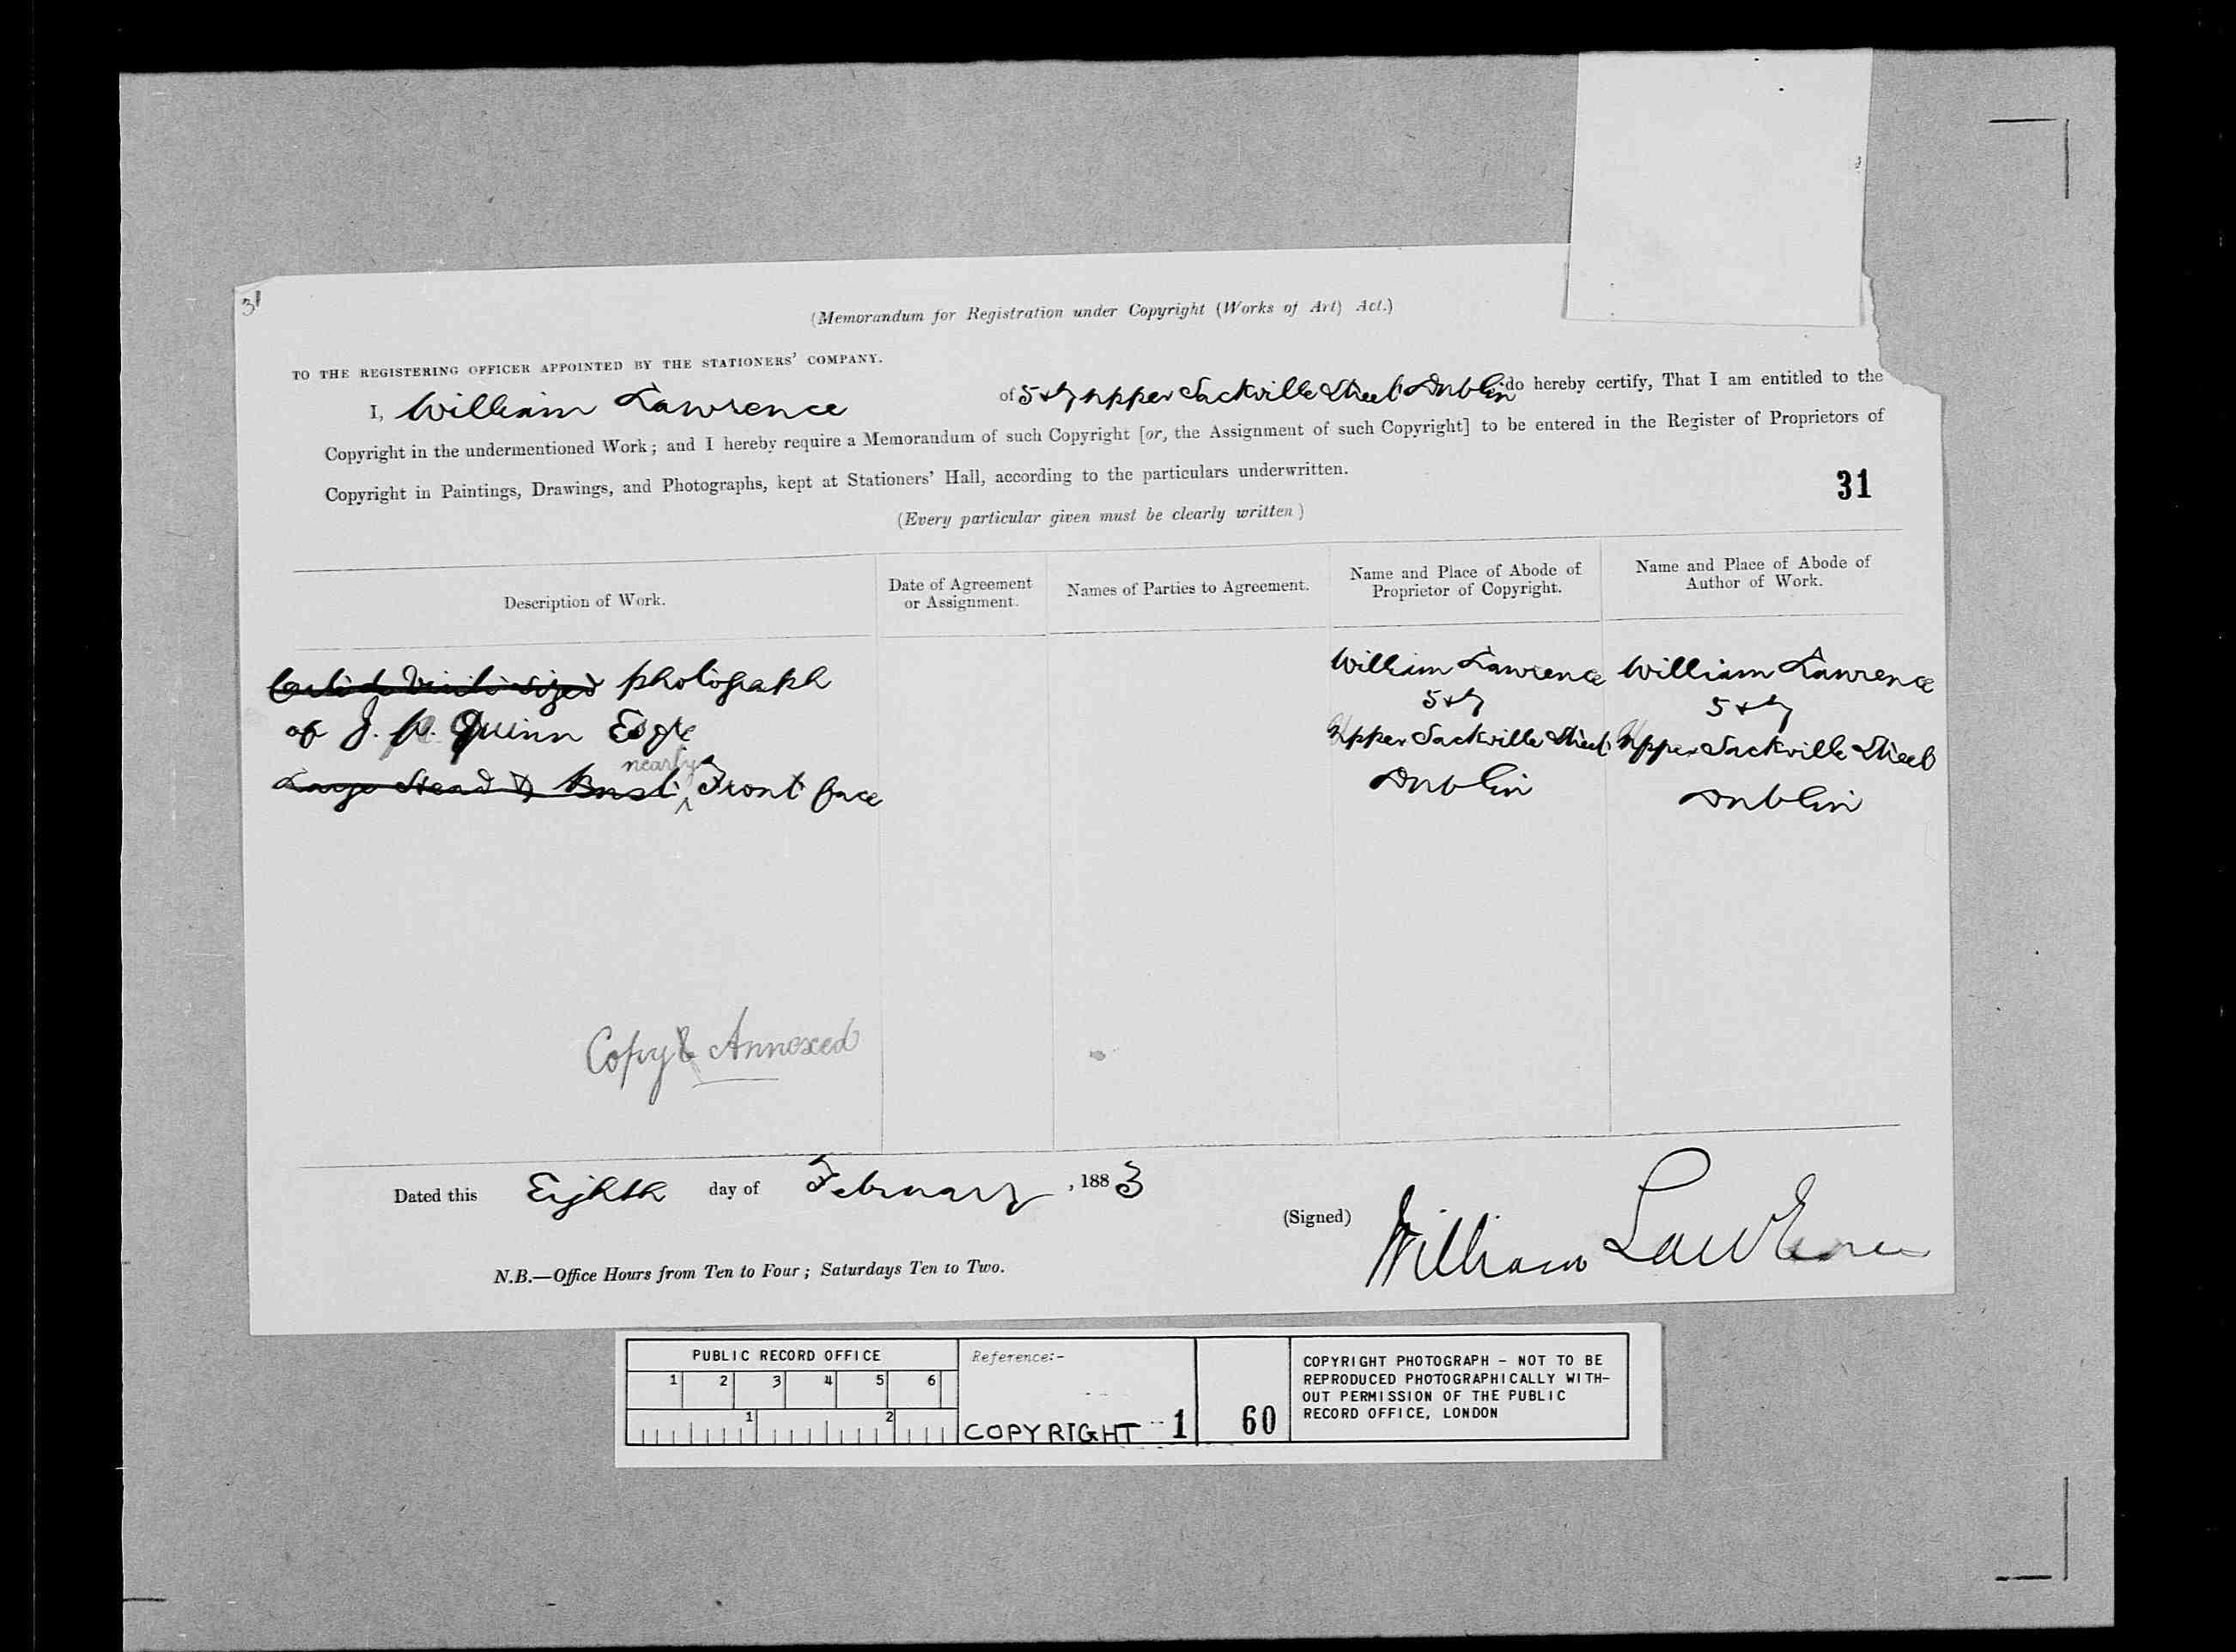 31
(Memorandum for Registration under Copyright (Works of Art) Act.)
TO THE REGISTERING OFFICER APPOINTED BY THE STATIONERS' COMPANY.
I, William Lawrence of 5 & 7 Upper Sackville Street Dublin do hereby certify, That I am entitled to the
Copyright in the undermentioned Work; and I hereby require a Memorandum of such Copyright [or, the Assignment of such Copyright] to be entered in the Register of Proprietors of
Copyright in Paintings, Drawings, and Photographs, kept at Stationers' Hall, according to the particulars underwritten.
31
(Every particular given must be clearly written)
Description of Work.
Date of Agreement
or Assignment.
Names of Parties to Agreement.
Name and Place of Abode of
Proprietor of Copyright.
Name and Place of Abode of
Author of Work.
Carte de Visite sized photograph
of J. P. Quinn Esqre
nearly
Large Head & Bust Front face
William Lawrence
5 & 7
Upper Sackville Street
Dublin
William Lawrence
5 & 7
Upper Sackville Street
Dublin
Copy Annexed
Dated this Eighth day of February, 1883
(Signed) William Lawrence
N.B.—Office Hours from Ten to Four; Saturdays Ten to Two.
PUBLIC RECORD OFFICE
1 2 3 4 5 6
1 2
Reference:-
COPYRIGHT 1
60
COPYRIGHT PHOTOGRAPH - NOT TO BE
REPRODUCED PHOTOGRAPHICALLY WITH-
OUT PERMISSION OF THE PUBLIC
RECORD OFFICE, LONDON